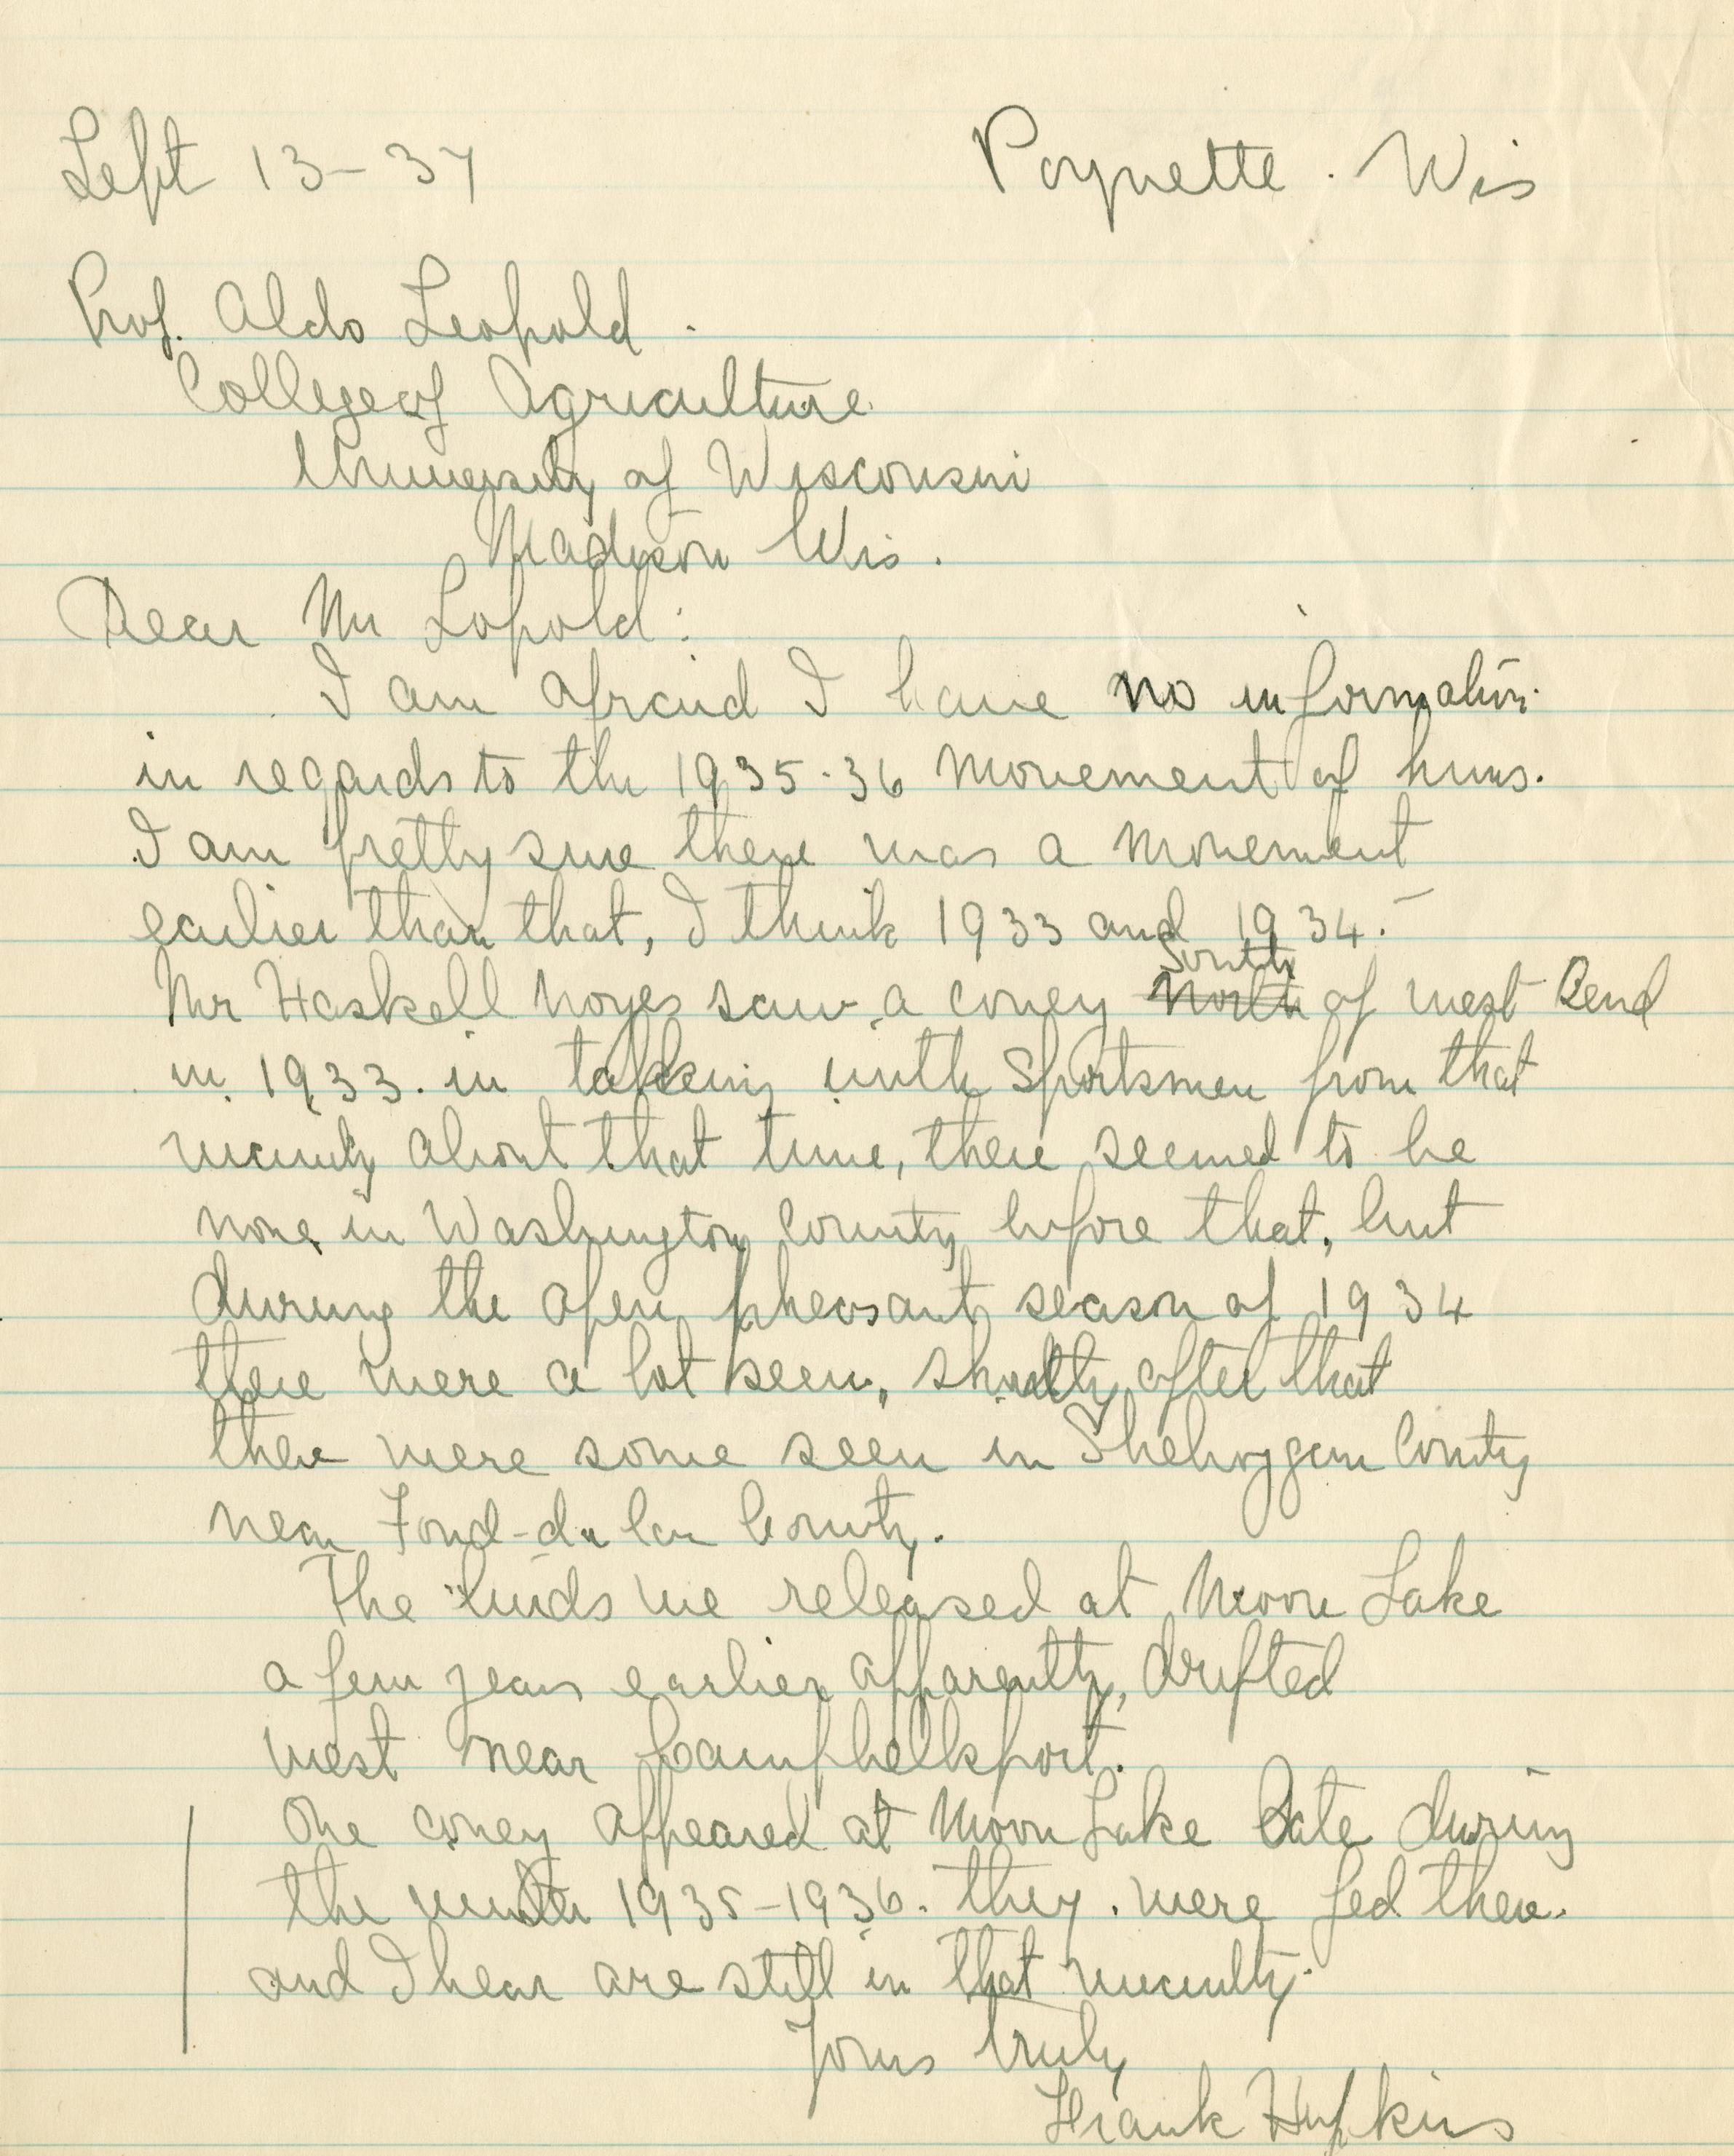 Sept 13-37 Poynette. Wis
Prof. Aldo Leopold.
College of Agriculture
University of Wisconsin
Madison Wis.
Dear Mr Lopold:
I am afraid I have no information
in regards to the 1935-36 movement of huns.
I am pretty sure there was a movement
earlier than that, I think 1933 and 1934.
South
Mr Haskell Noyes saw a covey north of West Bend
in 1933. in talking with Sportsmen from that
vicinity about that time, there seemed to be
none in Washington County before that, but
during the open pheasant season of 1934
there were a lot seen, shortly after that
there were some seen in Sheboygan County
near Fond-du lac County.
The birds we released at Moon Lake
a few years earlier apparently, drifted
west near Campbellsport.
One covey appeared at Moon Lake Late during
the winter 1935-1936. they were fed there.
and I hear are still in that vicinity.
Yours truly
Frank Hopkins